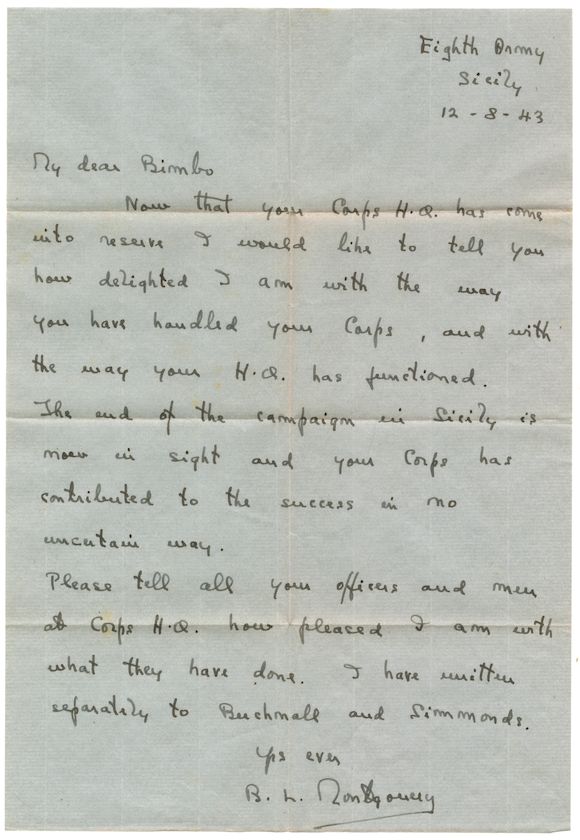 Eighth Army
Sicily
12 - 8 - 43
My dear Bimbo
Now that your Corps H.Q. has come
into reserve I would like to tell you
how delighted I am with the way
you have handled your Corps, and with
the way your H.Q. has functioned.
The end of the campaign in Sicily is
now in sight and your Corps has
contributed to the success in no
uncertain way.
Please tell all your officers and men
at Corps H.Q. how pleased I am with
what they have done. I have written
separately to Bucknall and Simmonds.
Yrs ever
B. L. Montgomery